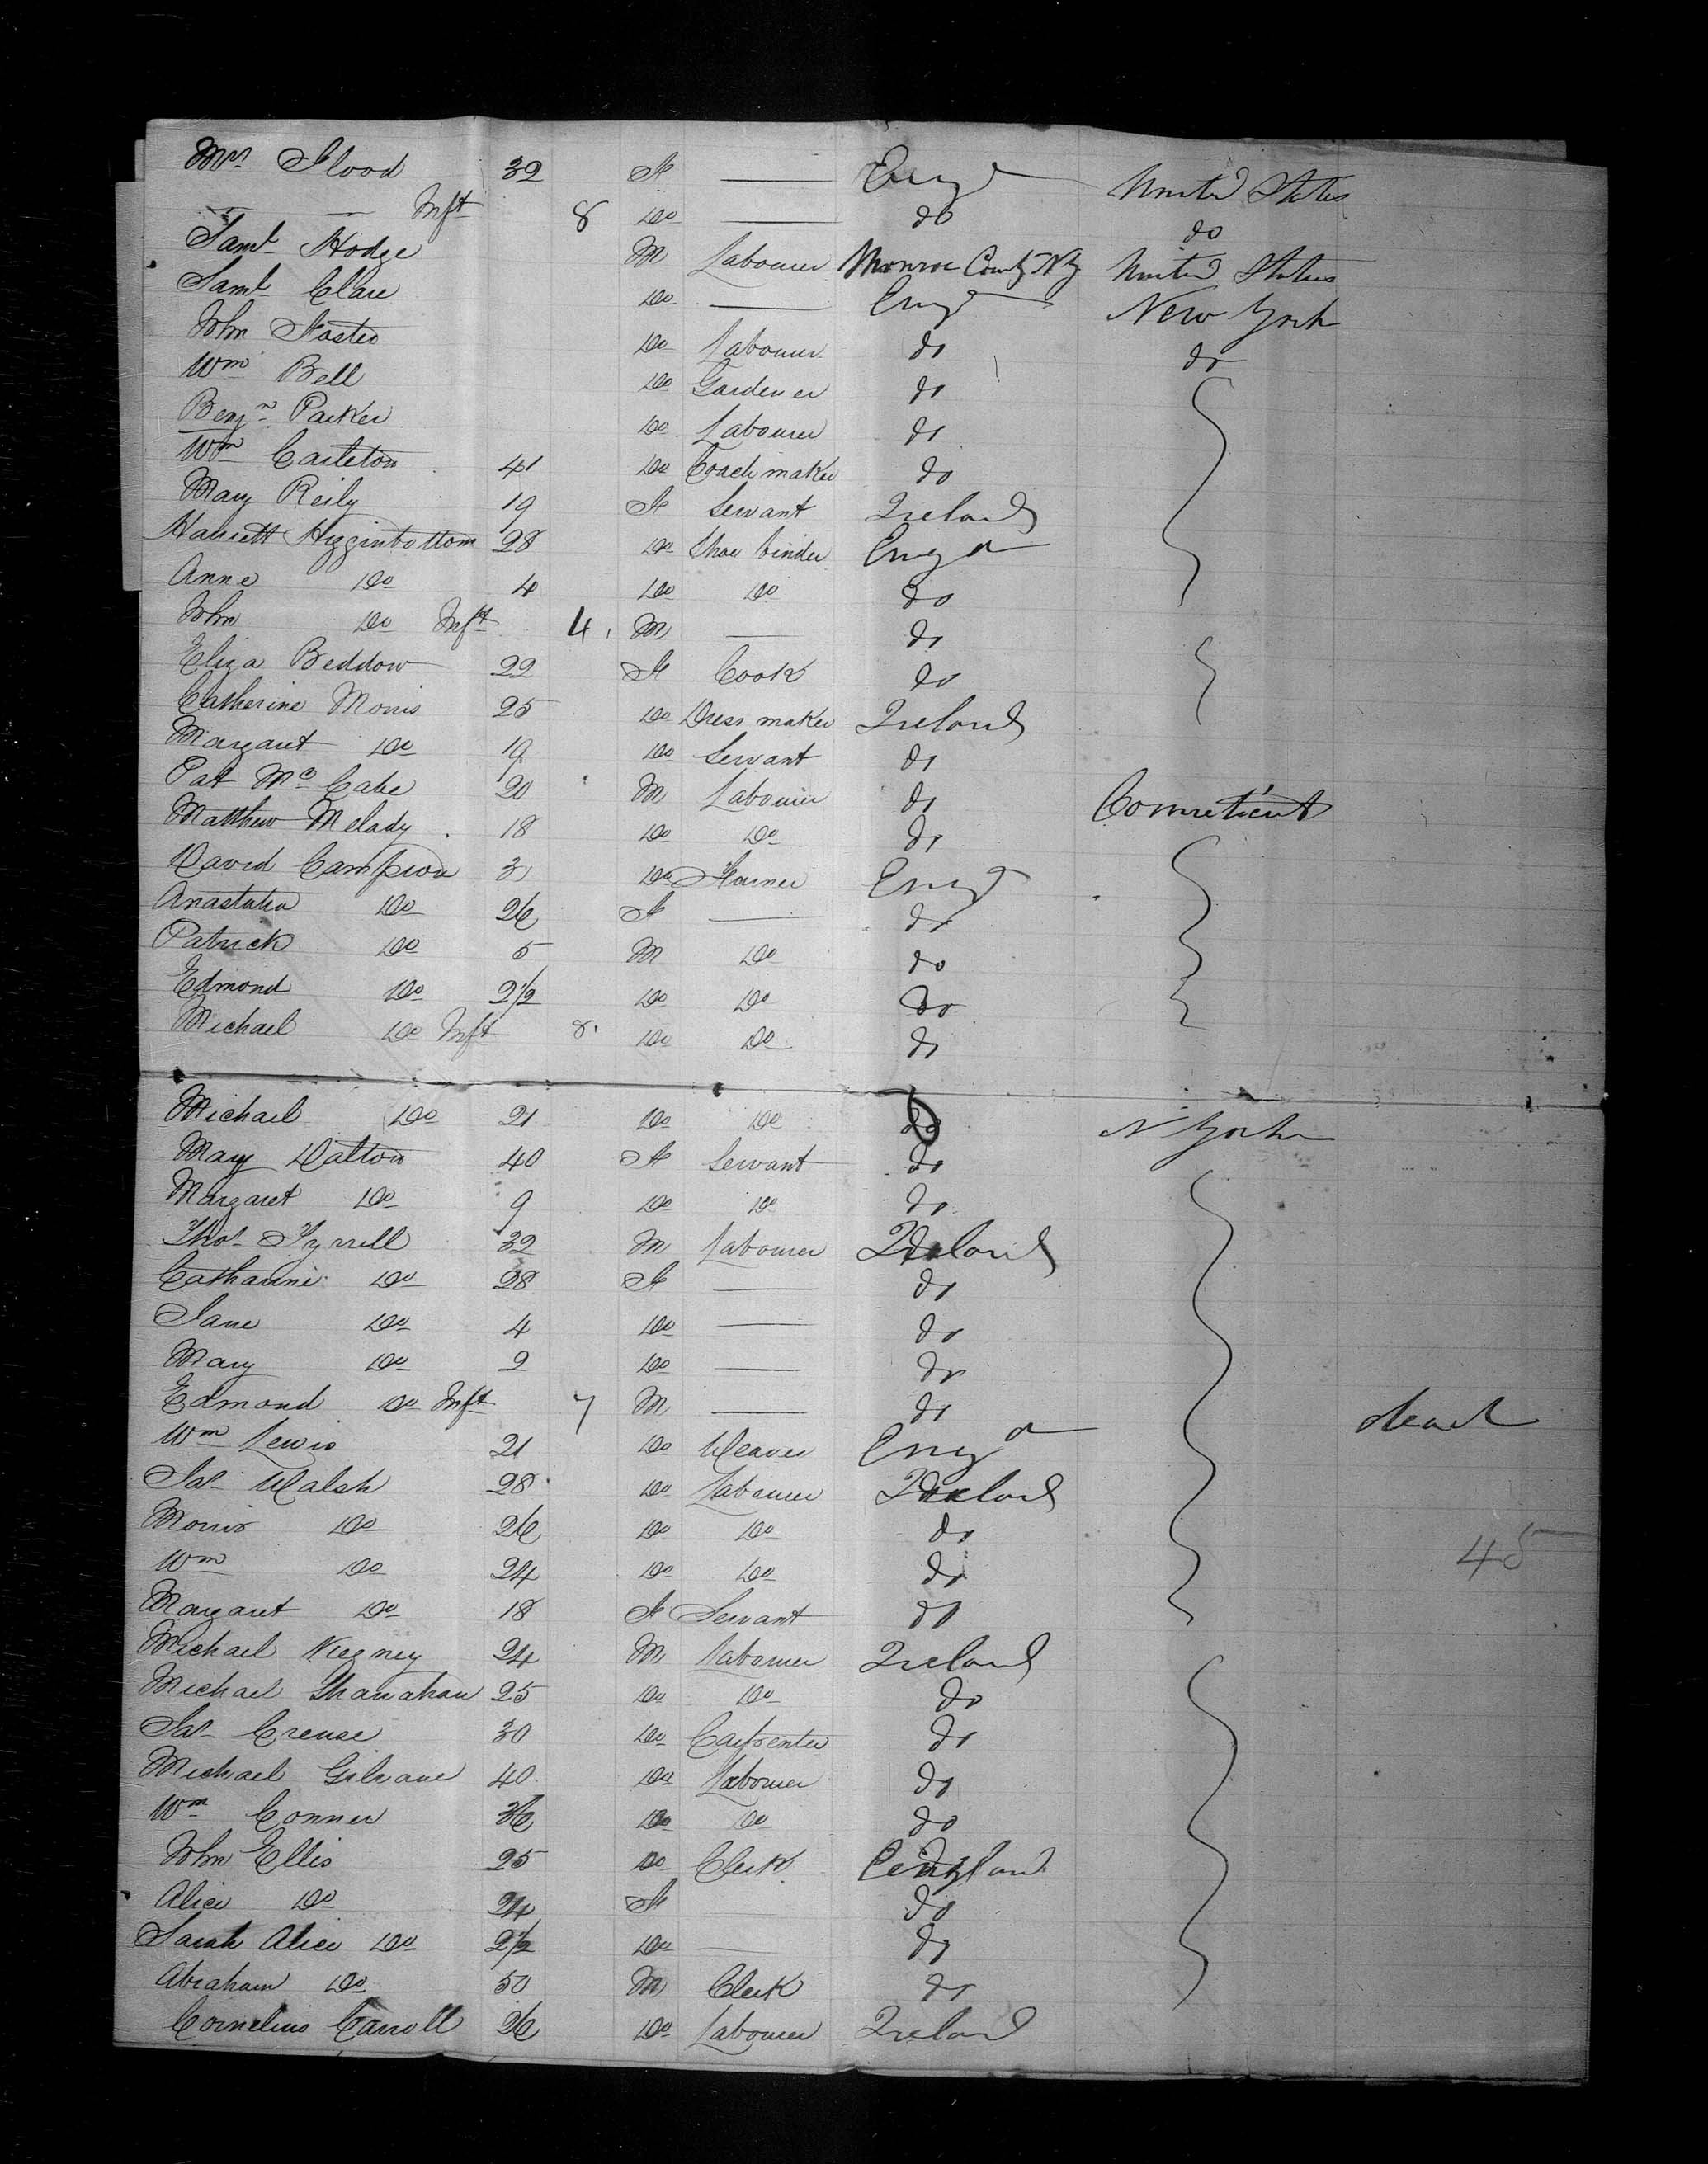 Mrs Flood 32 F — Engd United States
— — Inft 8 Do — do do
Saml Hodge M Labourer Monroe County NY United States
Saml Clare Do — Engd New York
John Foster Do Labourer do do
Wm Bell Do Gardener do
Benjn Parker Do Labourer do
Wm Carleton 41 Do Coach maker do
Mary Reily 19 F Servant Ireland
Harriett Higginbottom 28 Do Shoe binder Engd
Anne Do 4 Do Do do
John Do Inft 4 M — do
Eliza Beddow 22 F Cook do
Catherine Morris 25 Do Dress maker Ireland
Margaret Do 19 Do Servant do
Pat Mc Cabe 20 M Labourer do Connecticut
Matthew Melady 18 Do Do do
David Campion 31 Do Farmer Engd
Anastatia Do 26 F — do
Patrick Do 5 M Do do
Edmond Do 2½ Do Do do
Michael Do Inft 8 Do Do do
Michael Do 21 Do Do do N York
Mary Dalton 40 F Servant do
Margaret Do 9 Do Do do
Thos Tyrrell 32 M Labourer Ireland
Catharine Do 28 F — do
Jane Do 4 Do — do
Mary Do 2 Do — do
Edmond Do Inft 7 M — do dead
Wm Lewis 21 Do Weaver Engd
Jas Walsh 28 Do Labourer Ireland
Morris Do 26 Do Do do
Wm Do 24 Do Do do 45
Margaret Do 18 F Servant do
Michael 24 M Labourer Ireland
Michael Shanahan 25 Do Do do
Jas Crense 30 Do Carpenter do
Michael Gilvane 40 Do Labourer do
Wm Conner 36 Do Do do
John Ellis 25 Do Clerk England
Alice Do 24 F — do
Sarah Alice Do 2½ Do — do
Abraham Do 50 M Clerk do
Cornelius Carroll 26 Do Labourer Ireland